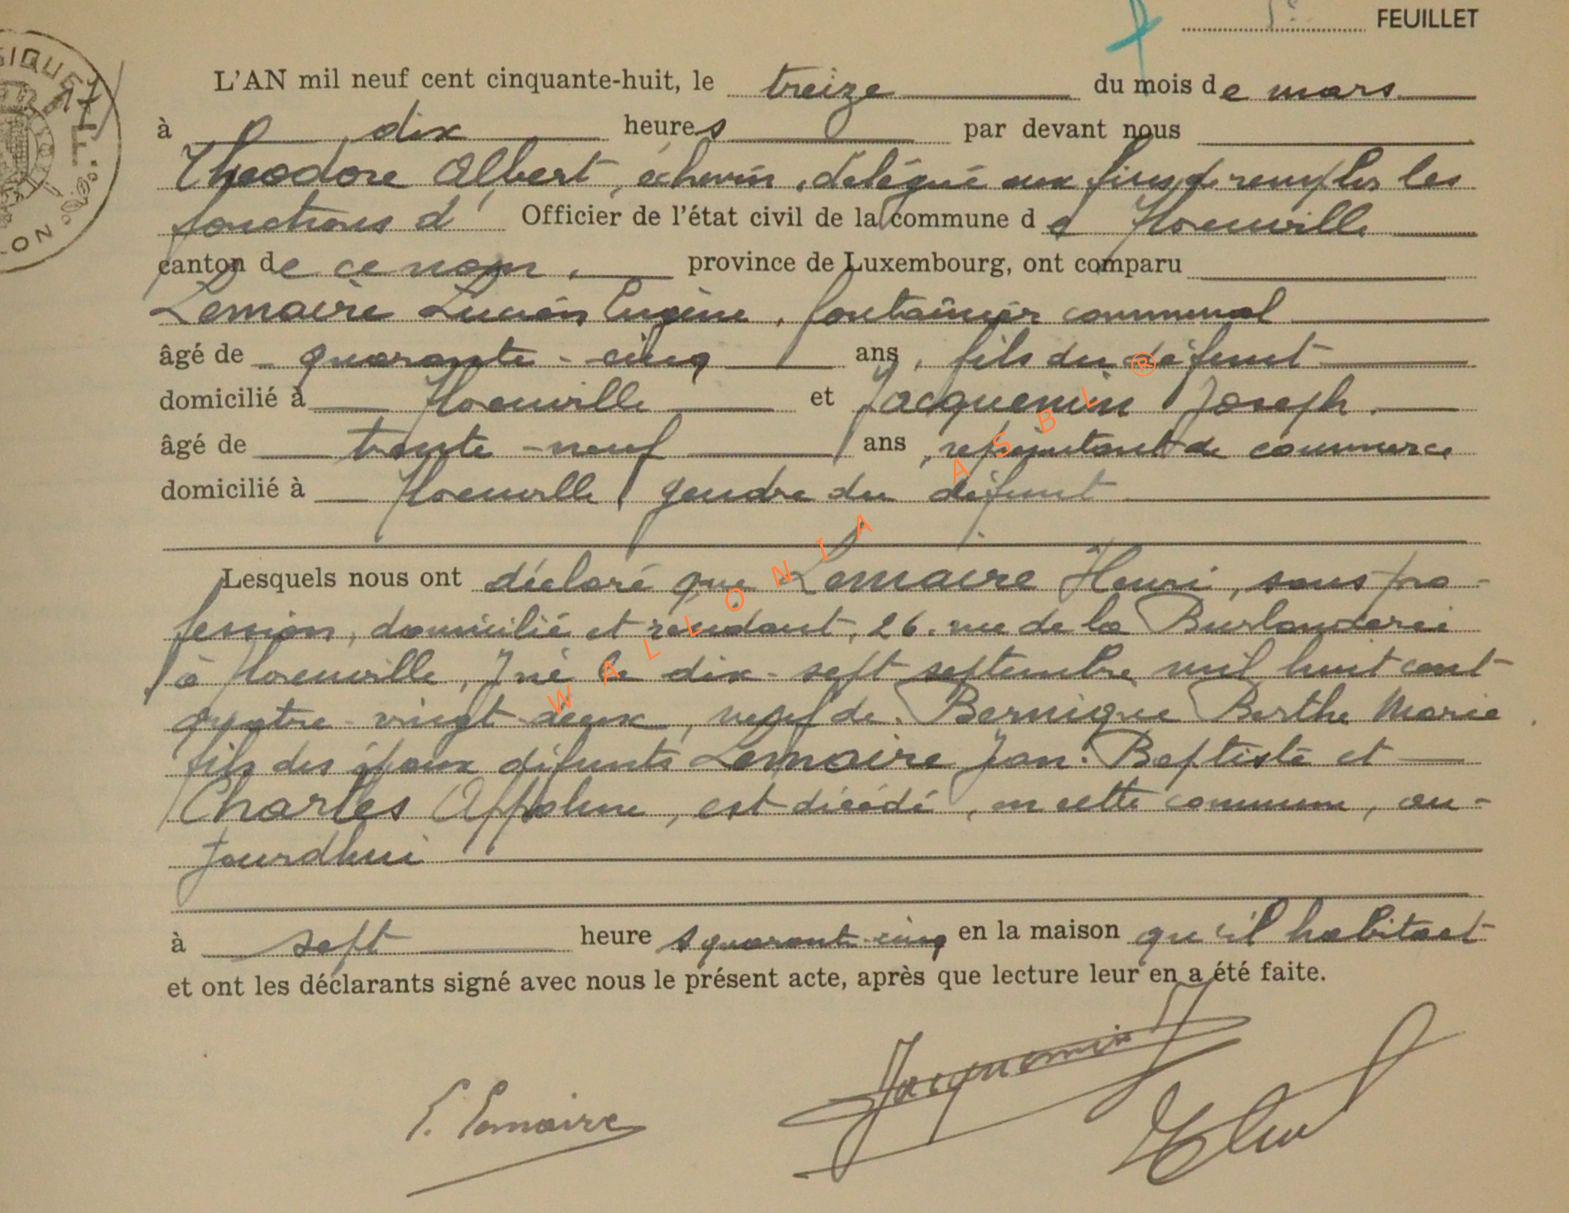 FEUILLET
L'AN mil neuf cent cinquante-huit, le treize du mois de mars
à dix heures par devant nous
Théodore Albert, échevin, délégué aux fins de remplir les
fonctions d' Officier de l'état civil de la commune de
canton de ce nom, province de Luxembourg, ont comparu
Lemaire Lucien Eugène, fontainier communal
âgé de quarante-cinq ans, fils du défunt
domicilié à et Jacquemin Joseph.
âgé de trente-neuf ans, représentant de commerce
domicilié à gendre du défunt
Lesquels nous ont déclaré que Lemaire Henri, sans pro-
fession, domicilié et résidant, 26, rue de la
à né le dix-sept septembre mil huit cent
quatre-vingt-deux, veuf de Bernique Berthe Marie
fils des époux défunts Lemaire Jean-Baptiste et
Charles est décédé, en cette commune, au-
jourdhui
à sept heures quarante-cinq en la maison qu'il habitait
et ont les déclarants signé avec nous le présent acte, après que lecture leur en a été faite.
Lemaire Jacquemin
WALLONIA ASBL ®